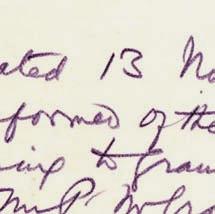 ated 13 No
formed of the
ing to gran